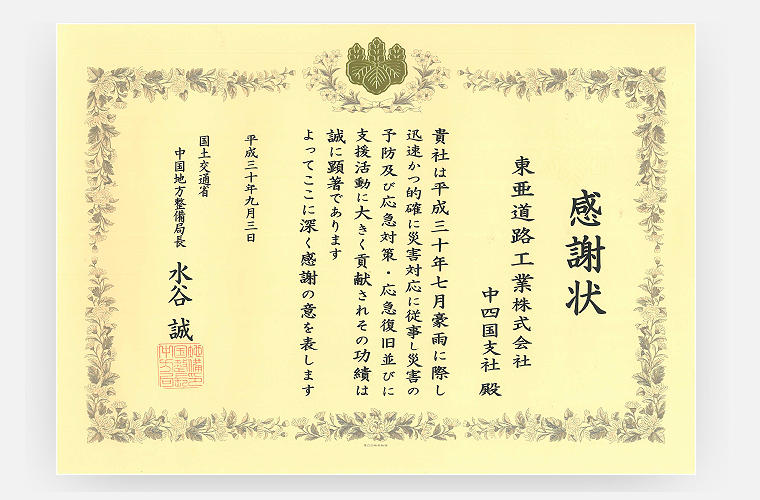 感謝状
東亜道路工業株式会社
中四国支社 殿
貴社は平成三十年七月豪雨に際し
迅速かつ的確に災害対応に従事し災害の
予防及び応急対策・応急復旧並びに
支援活動に大きく貢献されその功績は
誠に顕著であります
よってここに深く感謝の意を表します
平成三十年九月三日
国土交通省
中国地方整備局長 水谷 誠